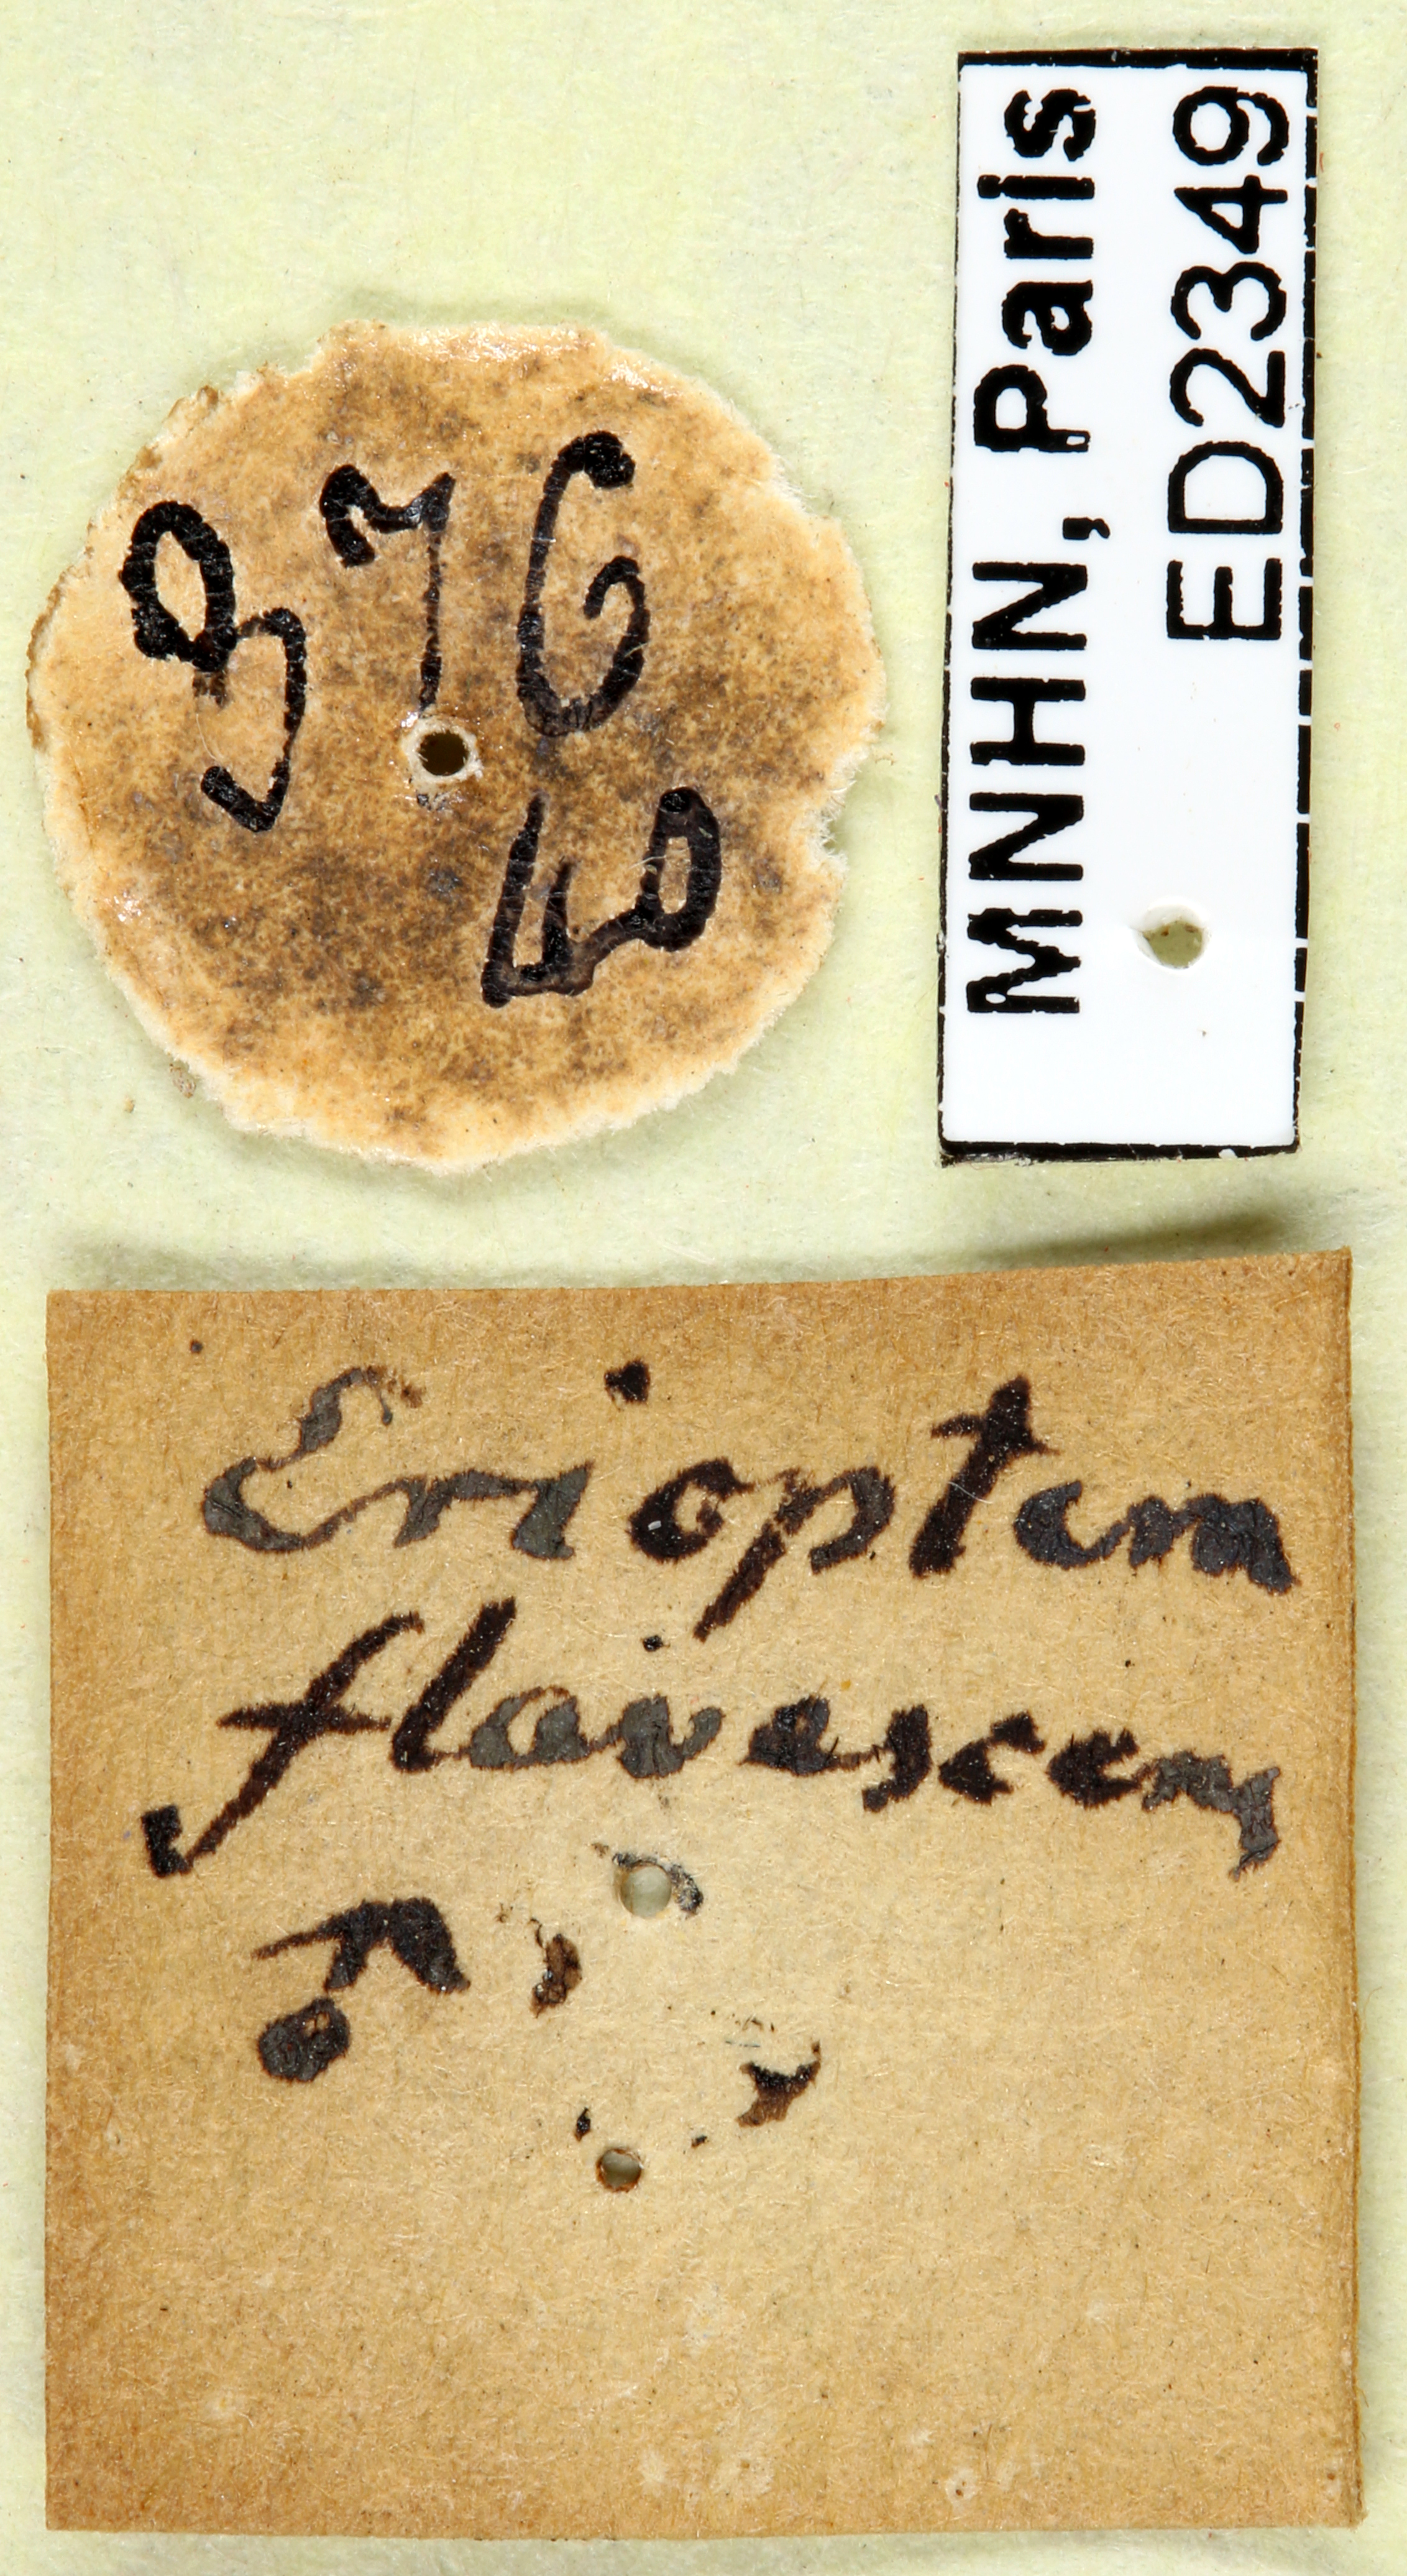 976
40
MNHN, Paris
ED2349
Erioptera
flavescens
♂